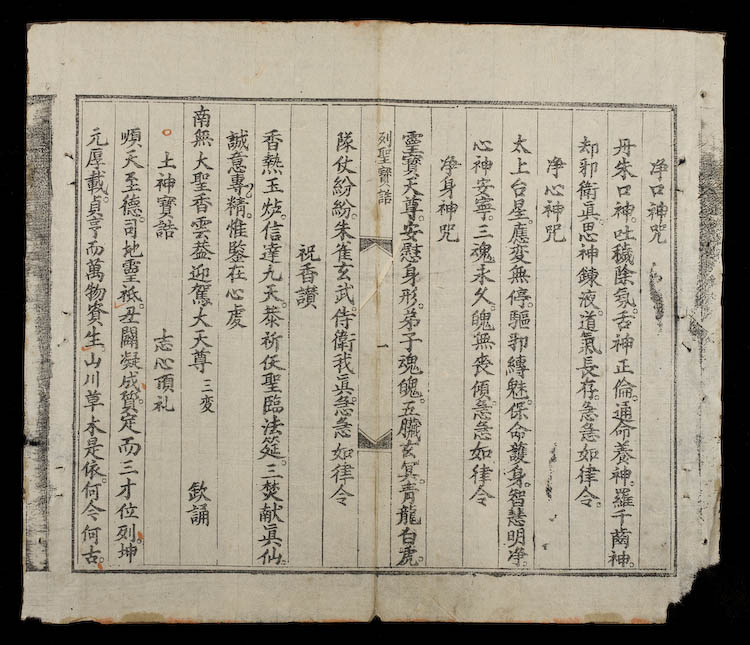 净口神咒
丹朱口神。吐穢除氛。舌神正倫。通命養神。羅千齒神。
却邪衛眞。思神鍊液。道氣長存。急急如律令。
净心神咒
太上台星。應変無停。驅邪縛魅。保命護身。智慧明净。
心神安寧。三魂永久。魄無喪傾。急急如律令
净身神咒
靈寶天尊。安慰身形。弟子魂魄。五臟玄冥。青龍白虎。
列聖寶誥
一
隊仗紛紛。朱雀玄武。侍衛我眞。急急如律令
祝香讃
香熱玉炉。信達九天。恭祈仸聖臨法筵。三焚献眞仙。
誠意專精。惟鑒在心虔
南無大聖香雲葢迎駕大天尊 三変 欽誦
土神寶誥 志心頂礼
順天至德。司地霊祇。丑闢凝成質。定而三才位列。坤
元厚載。貞亨而萬物資生。山川草木是依。何令何古。